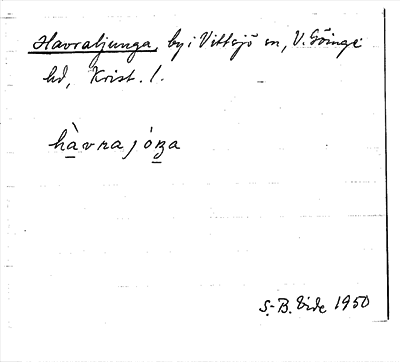 Havraljunga, by i Vittsjö sn, V. Göinge
hd, Krist. l.
hàvrajóŋa
S.-B. Vide 1950